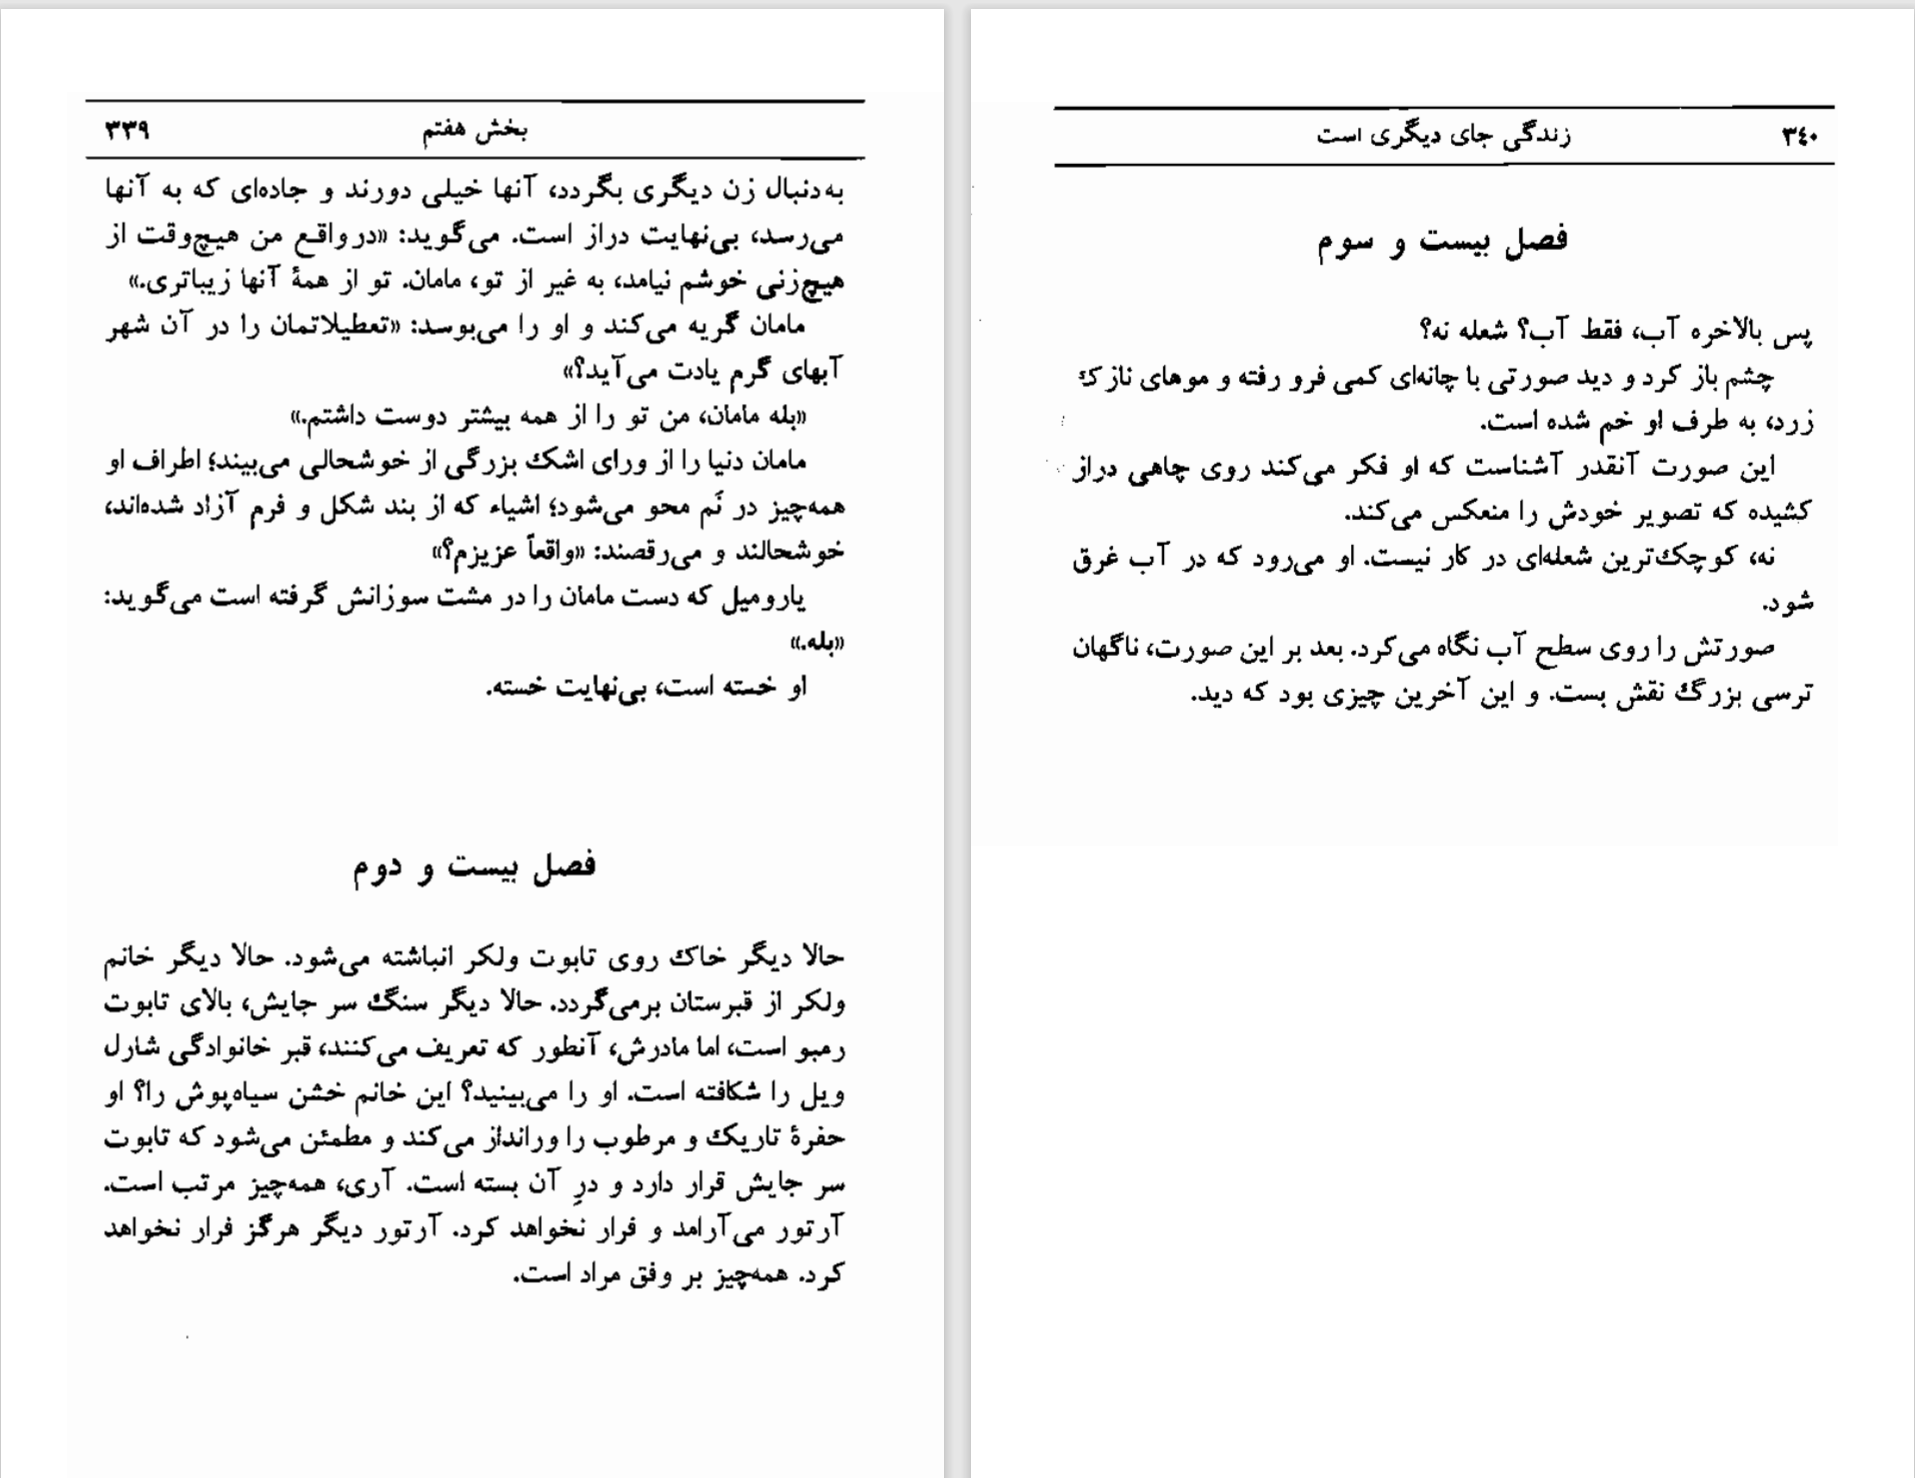 بخش هفتم ۳۳۹
به‌دنبال زن دیگری بگردد، آنها خیلی دورند و جاده‌ای که به آنها
می‌رسد، بی‌نهایت دراز است. می‌گوید: «درواقع من هیچ‌وقت از
هیچ‌زنی خوشم نیامد، به غیر از تو، مامان. تو از همهٔ آنها زیباتری.»
مامان گریه می‌کند و او را می‌بوسد: «تعطیلاتمان را در آن شهر
آبهای گرم یادت می‌آید؟»
«بله مامان، من تو را از همه بیشتر دوست داشتم.»
مامان دنیا را از ورای اشک بزرگی از خوشحالی می‌بیند؛ اطراف او
همه‌چیز در نَم محو می‌شود؛ اشیاء که از بند شکل و فرم آزاد شده‌اند،
خوشحالند و می‌رقصند: «واقعاً عزیزم؟»
یارومیل که دست مامان را در مشت سوزانش گرفته است می‌گوید:
«بله.»
او خسته است، بی‌نهایت خسته.
فصل بیست و دوم
حالا دیگر خاک روی تابوت ولکر انباشته می‌شود. حالا دیگر خانم
ولکر از قبرستان برمی‌گردد. حالا دیگر سنگ سر جایش، بالای تابوت
رمبو است، اما مادرش، آنطور که تعریف می‌کنند، قبر خانوادگی شارل
ویل را شکافته است. او را می‌بینید؟ این خانم خشن سیاه‌پوش را؟ او
حفرهٔ تاریک و مرطوب را ورانداز می‌کند و مطمئن می‌شود که تابوت
سر جایش قرار دارد و درِ آن بسته است. آری، همه‌چیز مرتب است.
آرتور می‌آرامد و فرار نخواهد کرد. آرتور دیگر هرگز فرار نخواهد
کرد. همه‌چیز بر وفق مراد است.
۳٤۰ زندگی جای دیگری است
فصل بیست و سوم
پس بالاخره آب، فقط آب؟ شعله نه؟
چشم باز کرد و دید صورتی با چانه‌ای کمی فرو رفته و موهای نازک
زرد، به طرف او خم شده است.
این صورت آنقدر آشناست که او فکر می‌کند روی چاهی دراز
کشیده که تصویر خودش را منعکس می‌کند.
نه، کوچک‌ترین شعله‌ای در کار نیست. او می‌رود که در آب غرق
شود.
صورتش را روی سطح آب نگاه می‌کرد. بعد بر این صورت، ناگهان
ترسی بزرگ نقش بست. و این آخرین چیزی بود که دید.